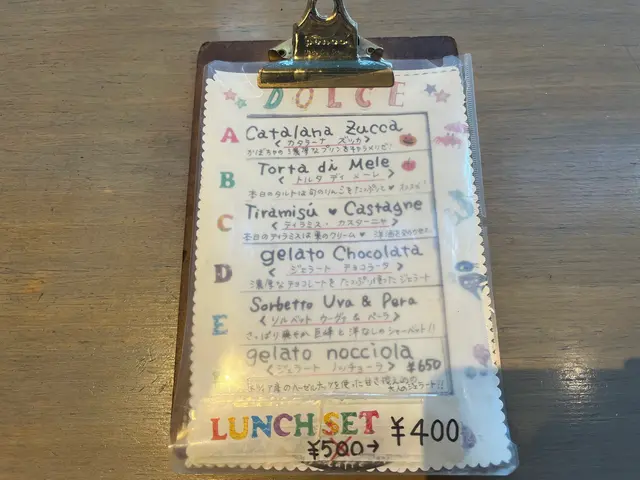 DOLCE
A Catalana Zucca
< カタラーナ ズッカ >
Torta di Mele
B < トルタ ディ メーレ >
Tiramisú ♥ Castagne
C < ティラミス・カスターニャ >
本日のティラミスは栗のクリーム♥
gelato Chocolata
D < ジェラート チョコラータ >
濃厚なチョコレートをたっぷり使ったジェラート
Sorbetto Uva & Pera
E < ソルベット ウーヴァ & ペーラ >
さっぱり爽やか 巨峰と洋なしのシャーベット!!
gelato nocciola
< ジェラート ノッチョーラ > ¥650
LUNCH SET ¥400
¥500→